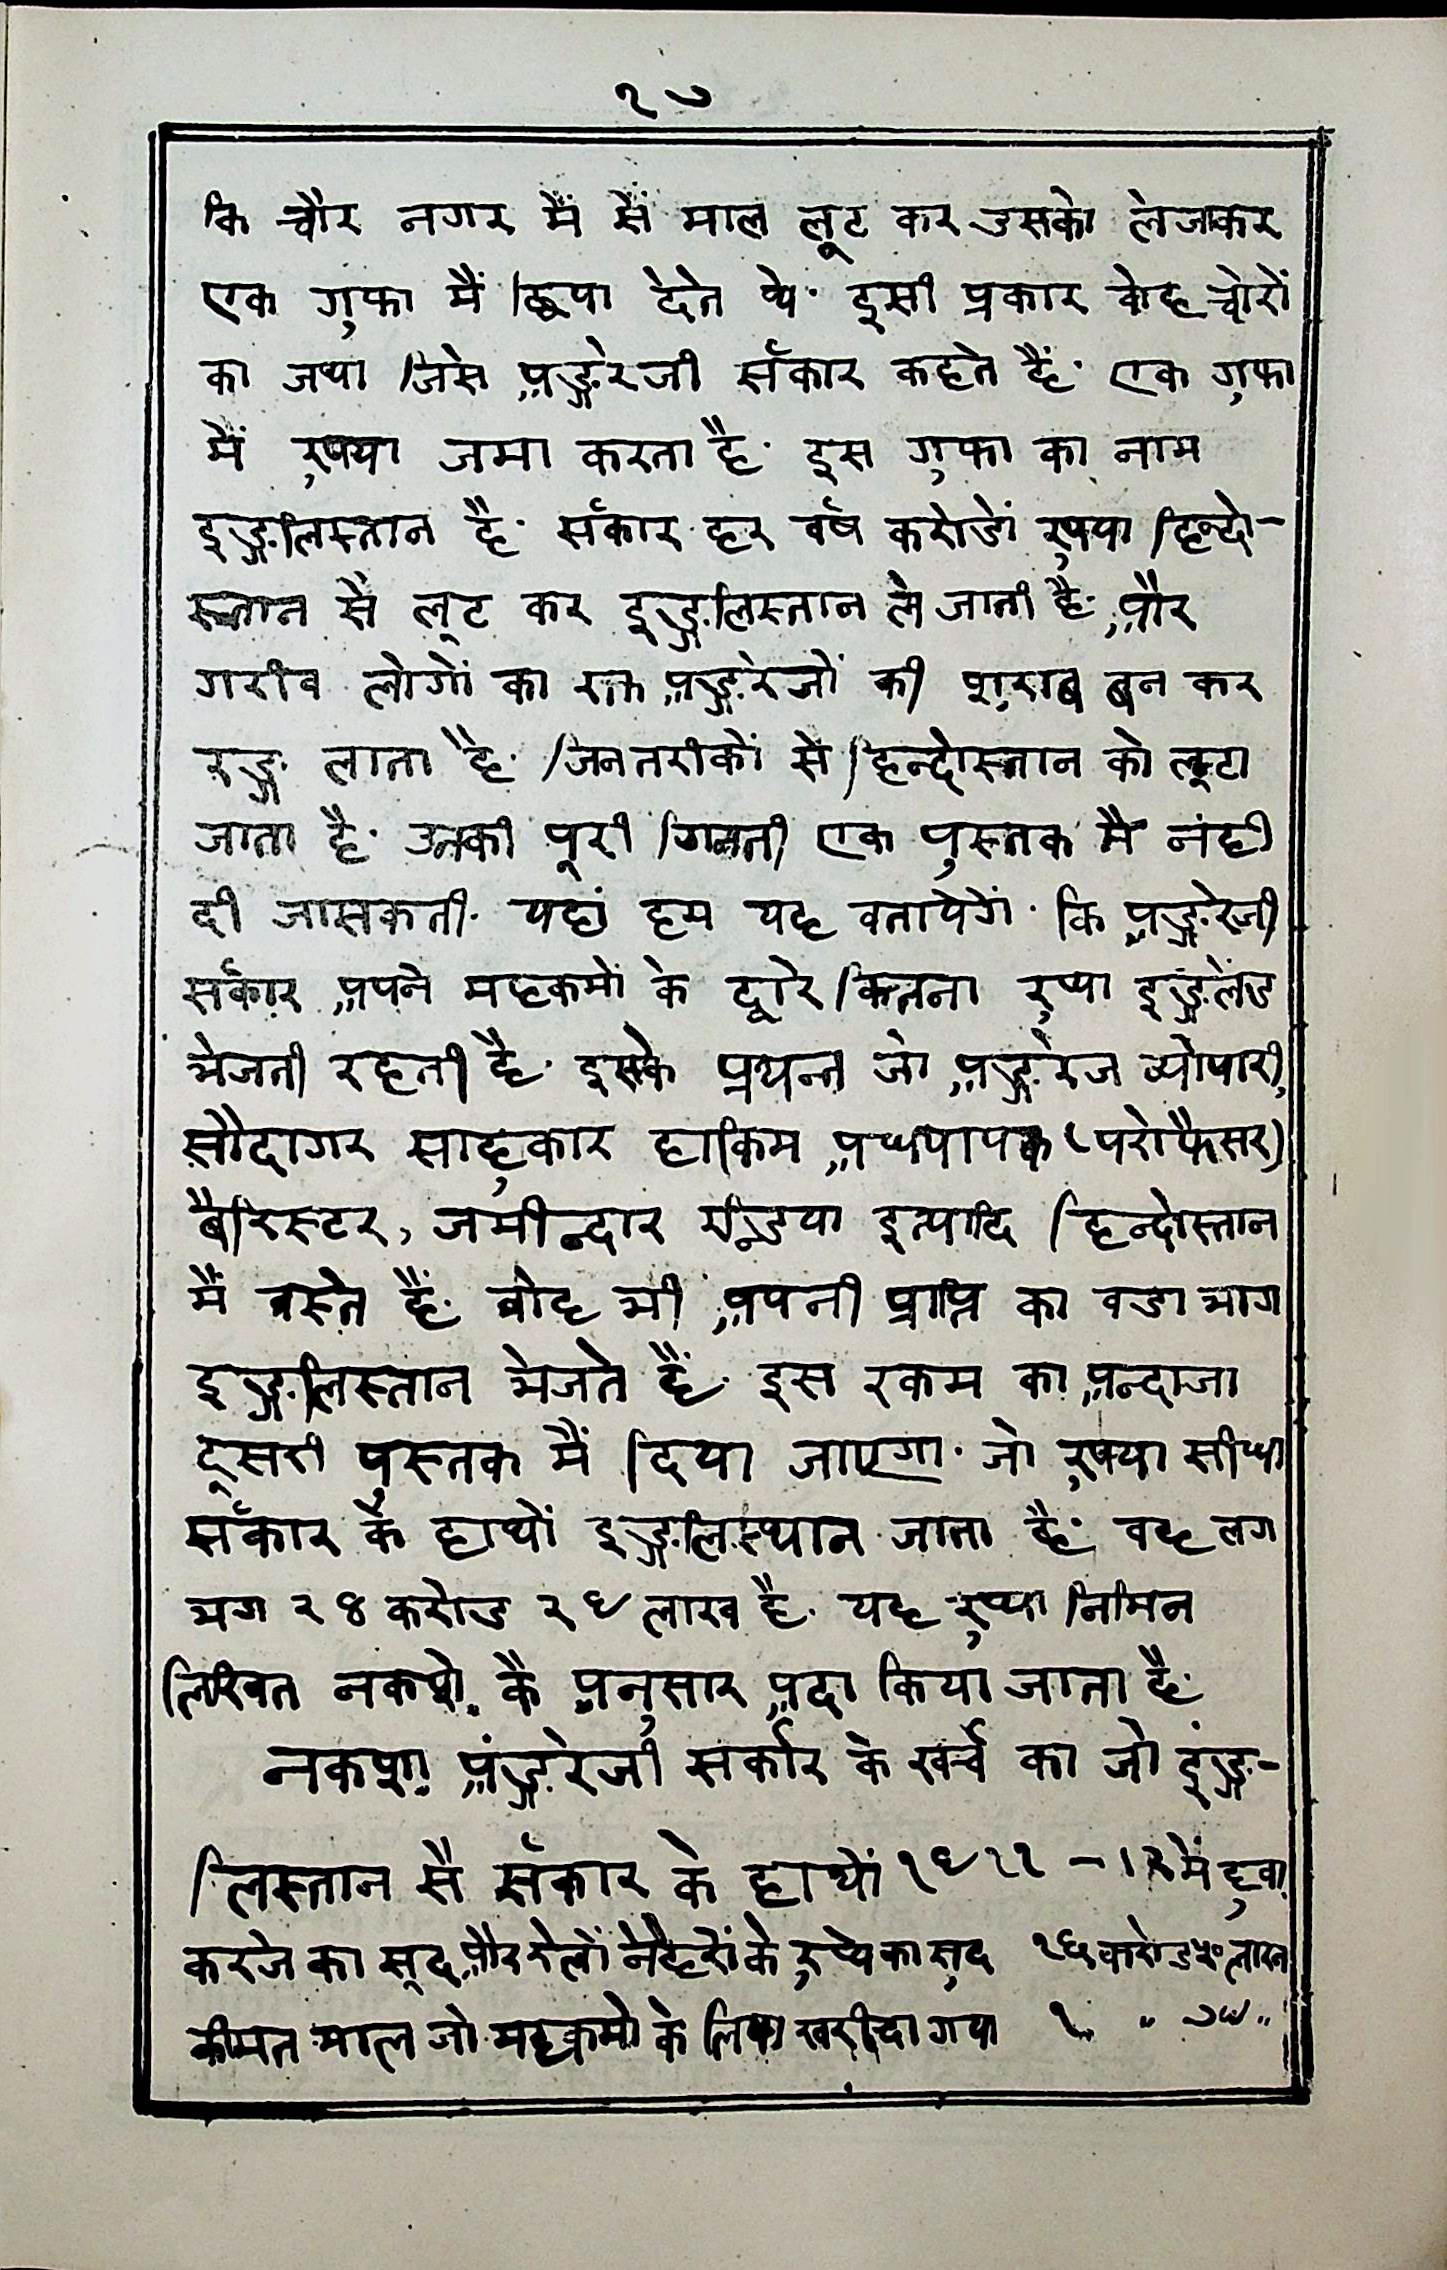 १७
कि चौर नगर में सें माल लूट कर उसको लेजाकर
एक गुफा मैं छिपा देते थे. इसी प्रकार वोह चोरों
का जथा जिसे अङ्गरेजी सर्कार कहते हैं. एक गुफा
में रुपया जमा करता है. इस गुफा का नाम
इङ्गलिस्तान है. सर्कार हर वर्ष करोडों रुपया हिन्दो-
स्तान सै लूट कर इङ्गलिस्तान ले जाती है. और
गरीव लोगों का रक्त अङ्गरेजों की शराब बन कर
रङ्ग लाता है. जिन तरीकों से हिन्दोस्तान को लूटा
जाता है. उनकी पूरी गिनती एक पुस्तक मै नंही
दी जासकती. यहां हम यह वतायेगें. कि अङ्गरेजी
सर्कार अपने महकमों के द्वारे कितना रुप्या इङ्गलेंड
भेजती रहती है. इसके प्रयन्त जो अङ्गरेज व्योपारी,
सौदागर साहुकार हाकिम अध्यापक (परोफैसर)
बैरिस्टर, जमीन्दार इत्यादि हिन्दोस्तान
मैं वस्ते हैं. वोह भी अपनी प्राप्ति का वडा भाग
इङ्गलिस्तान भेजते हैं. इस रकम का अन्दाजा
दूसरी पुस्तक मैं दिया जाएगा. जो रुपया सीधा
सर्कार कै हाथों इङ्गलिस्थान जाता है. वह लग
भग २४ करोड २६ लाख है. यह रुप्या निमिन
लिखित नकशे कै अनुसार अदा किया जाता है.
नकशा अंङ्गरेजी सर्कार के खर्च का जो इंङ्ग-
लिस्तान सै सर्कार के हाथों १९११ -१२ में हुवा
करजे का सूद और रेलों नैहरों के रुप्ये का सूद १६ करोड ५० लाख
कीमत माल जो महकमो के लिए खरीदा गया १ " "